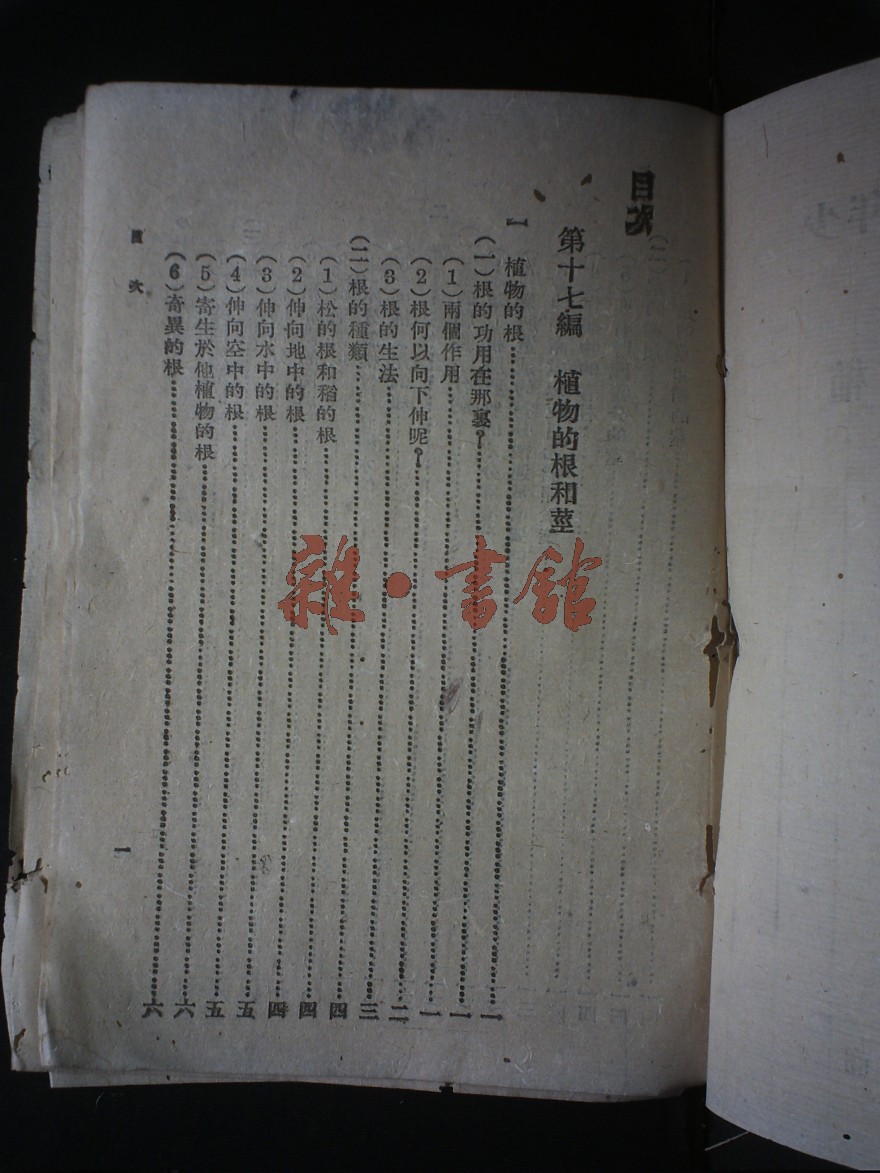 目次
第十七編　植物的根和莖
一　植物的根……一
(一)根的功用在那裏?……一
(1)兩個作用……一
(2)根何以向下伸呢?……二
(3)根的生法……三
(二)根的種類……四
(1)松的根和稻的根……四
(2)伸向地中的根……四
(3)伸向水中的根……五
(4)伸向空中的根……五
(5)寄生於他植物的根……六
(6)奇異的根……六
目次
一
雜·書館